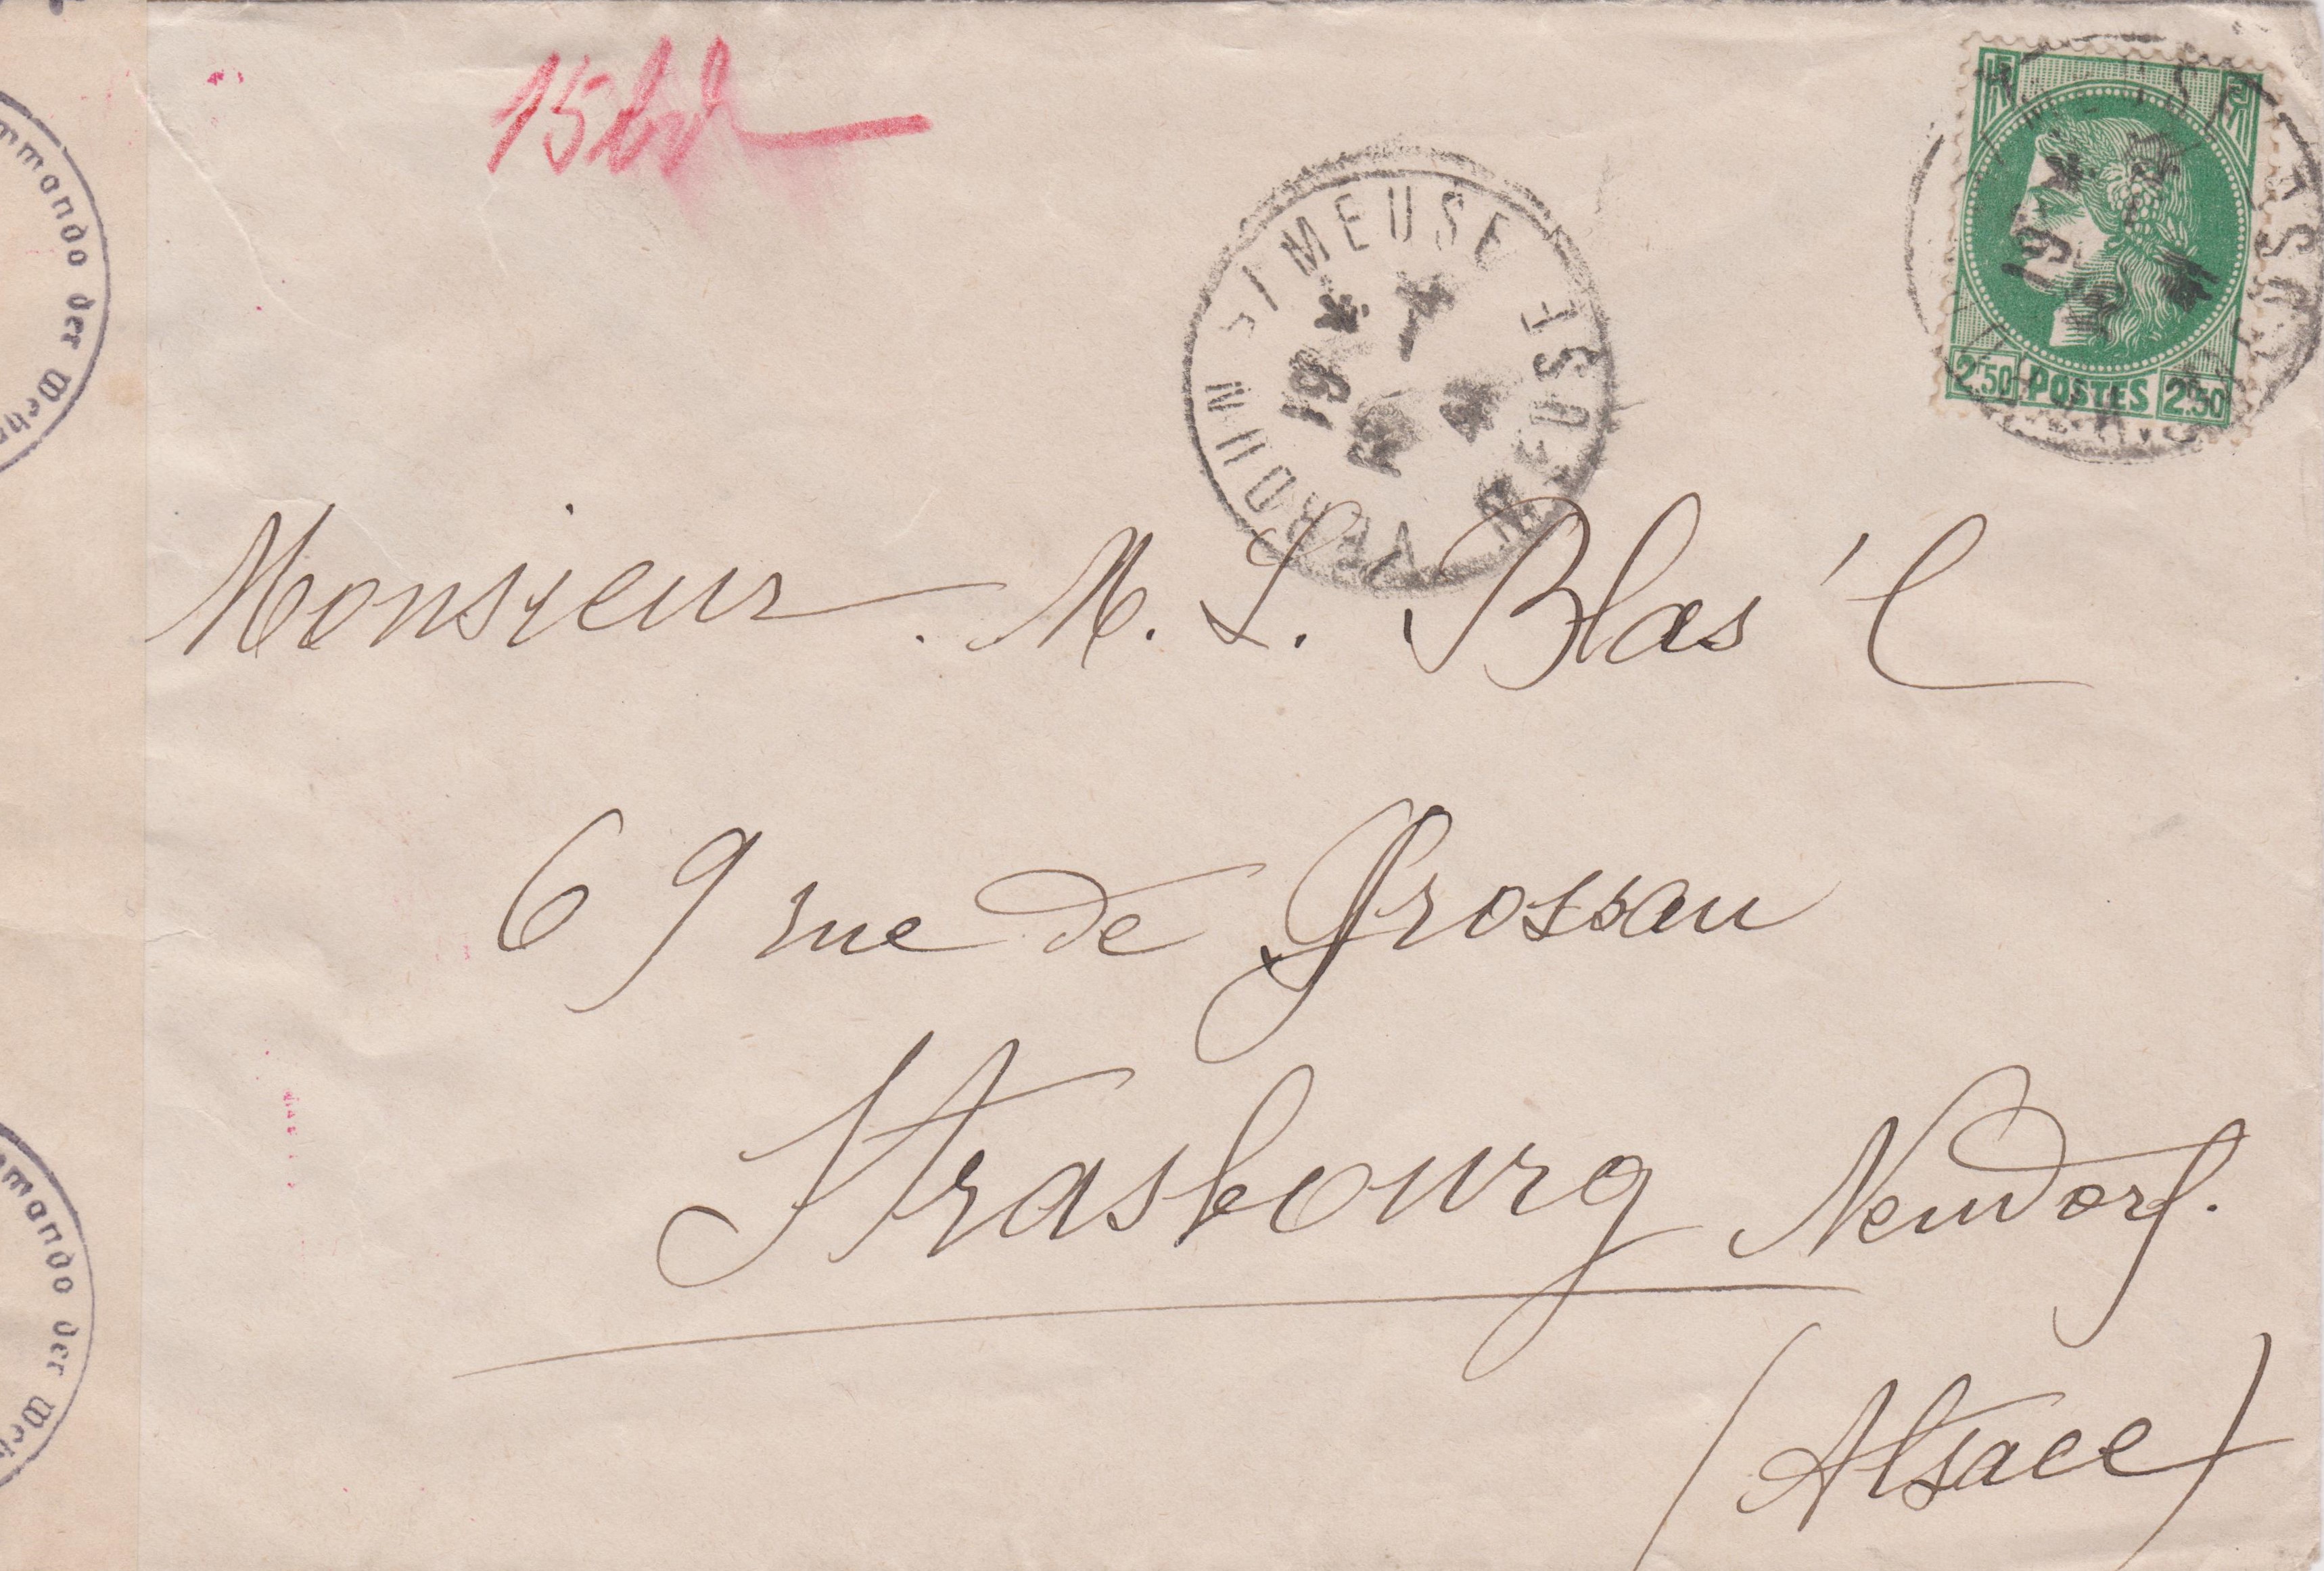 15
mmando der Weh
VERDUN S/ MEUSE
MEUSE
19
4
2.50 POSTES 2.50
Monsieur. M. L. Blas'l
69 rue de Grossau
Strasbourg Neudorf.
(Alsace)
mmando der Weh